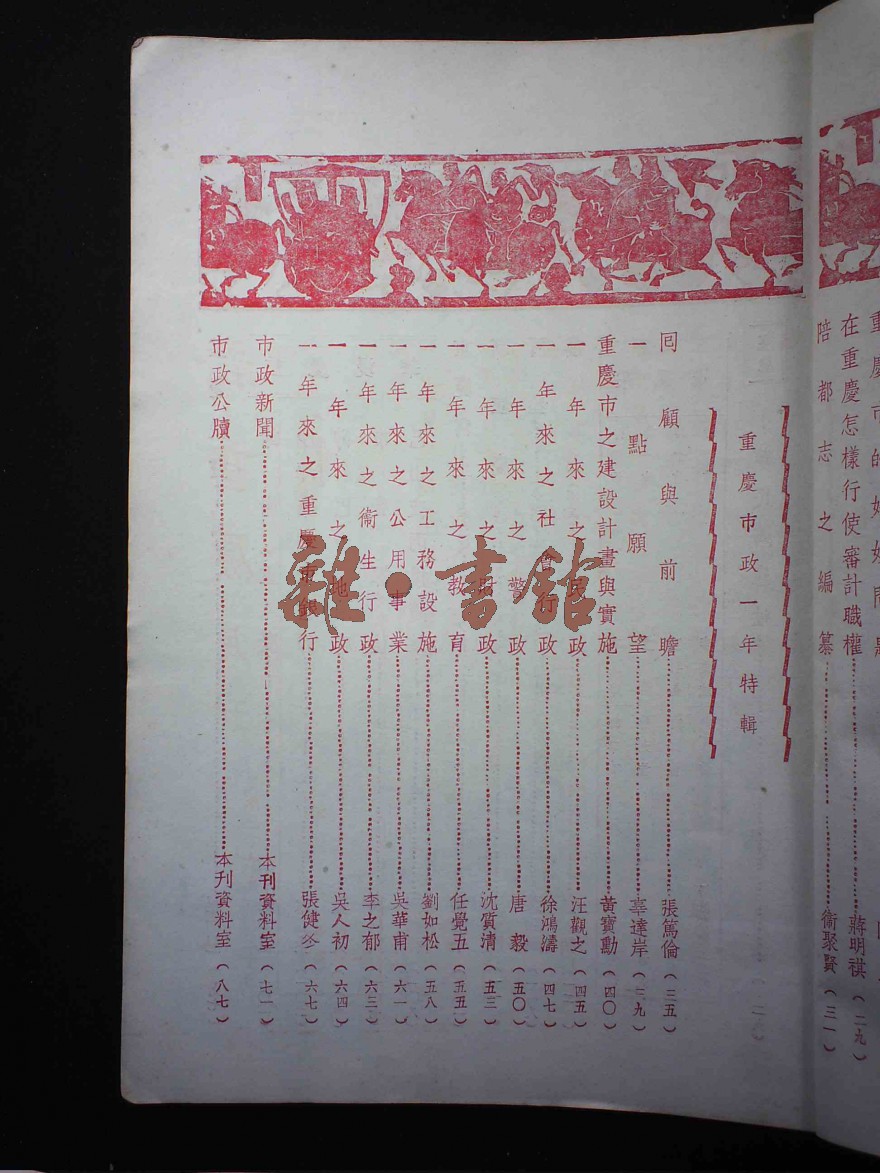 在重慶怎樣行使審計職權………蔣明祺(二九)
陪都志之編纂………衞聚賢(三一)
重慶市政一年特輯
回顧與前瞻………張篤倫(三五)
一點願望………辜達岸(三九)
重慶市之建設計畫與實施………黃寶勳(四〇)
一年來之民政………汪觀之(四五)
一年來之社會行政………徐鴻濤(四七)
一年來之警政………唐毅(五〇)
一年來之財政………沈質清(五三)
一年來之教育………任覺五(五五)
一年來之工務設施………劉如松(五八)
一年來之公用事業………吳華甫(六一)
一年來之衞生行政………李之郁(六三)
一年來之地政………吳人初(六四)
一年來之重慶市銀行………張健冬(六七)
市政新聞………本刊資料室(七一)
市政公牘………本刊資料室(八七)
雜·書館